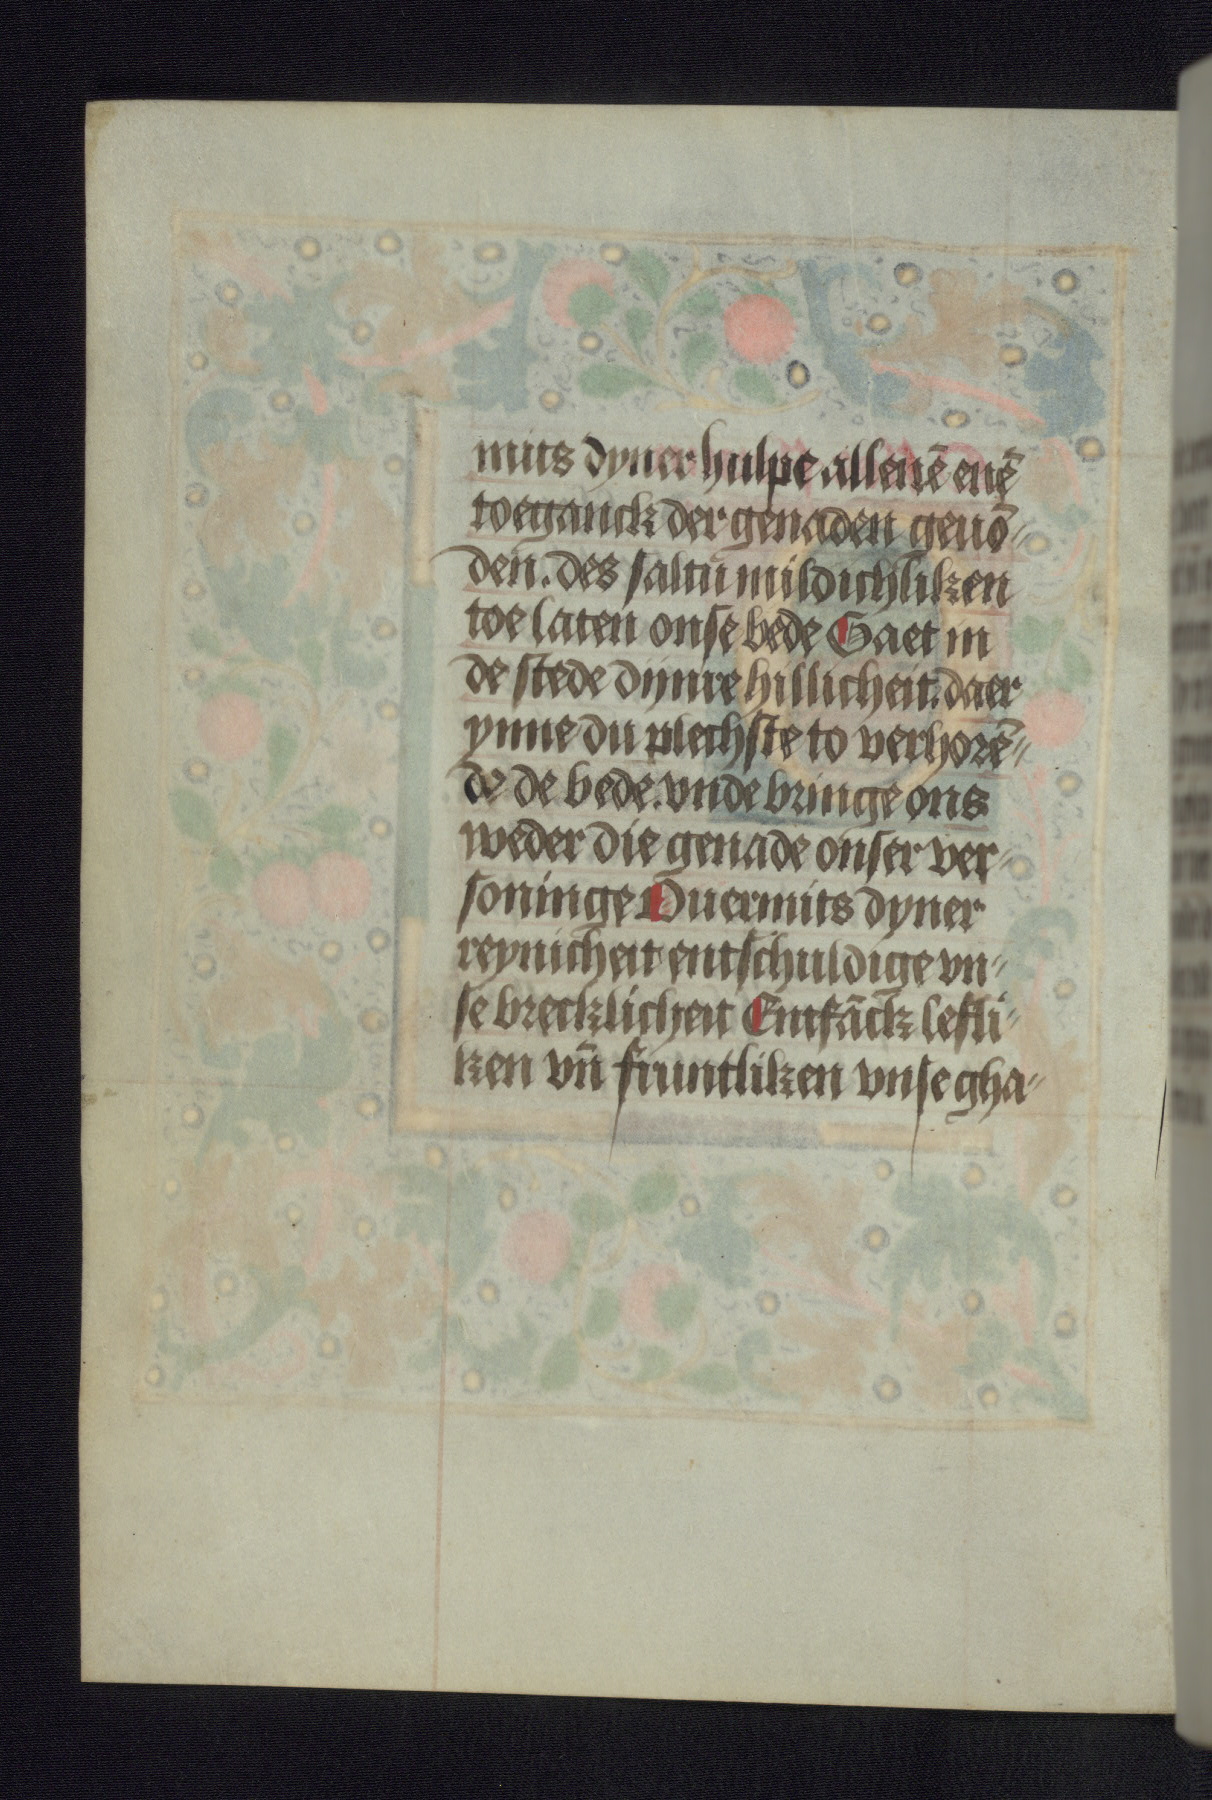 mits dyner hulpe alleuē enē
toeganck der genaden geuō-
den. des saltu mildichliken
toe laten onse bede Gaet in
de stede dijnre hillicheit. daer
ynne du plechste to verhorē-
de de bede. vnde bringe ons
weder die genade onser ver-
soninge Ouermits dyner
reynicheit entschuldige vn-
se brecklicheit Entfāck lefli-
ken vn̄ fruntliken vnse gha-